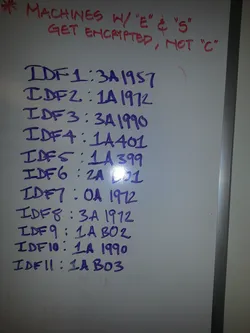 * MACHINES W/ "E" & "S"
GET ENCRYPTED, NOT "C"
IDF1: 3A1957
IDF2: 1A1972
IDF3: 3A1990
IDF4: 1A401
IDF5: 1A399
IDF6: 2A
IDF7: 0A1972
IDF8: 3A1972
IDF9: 1AB02
IDF10: 1A1990
IDF11: 1AB03